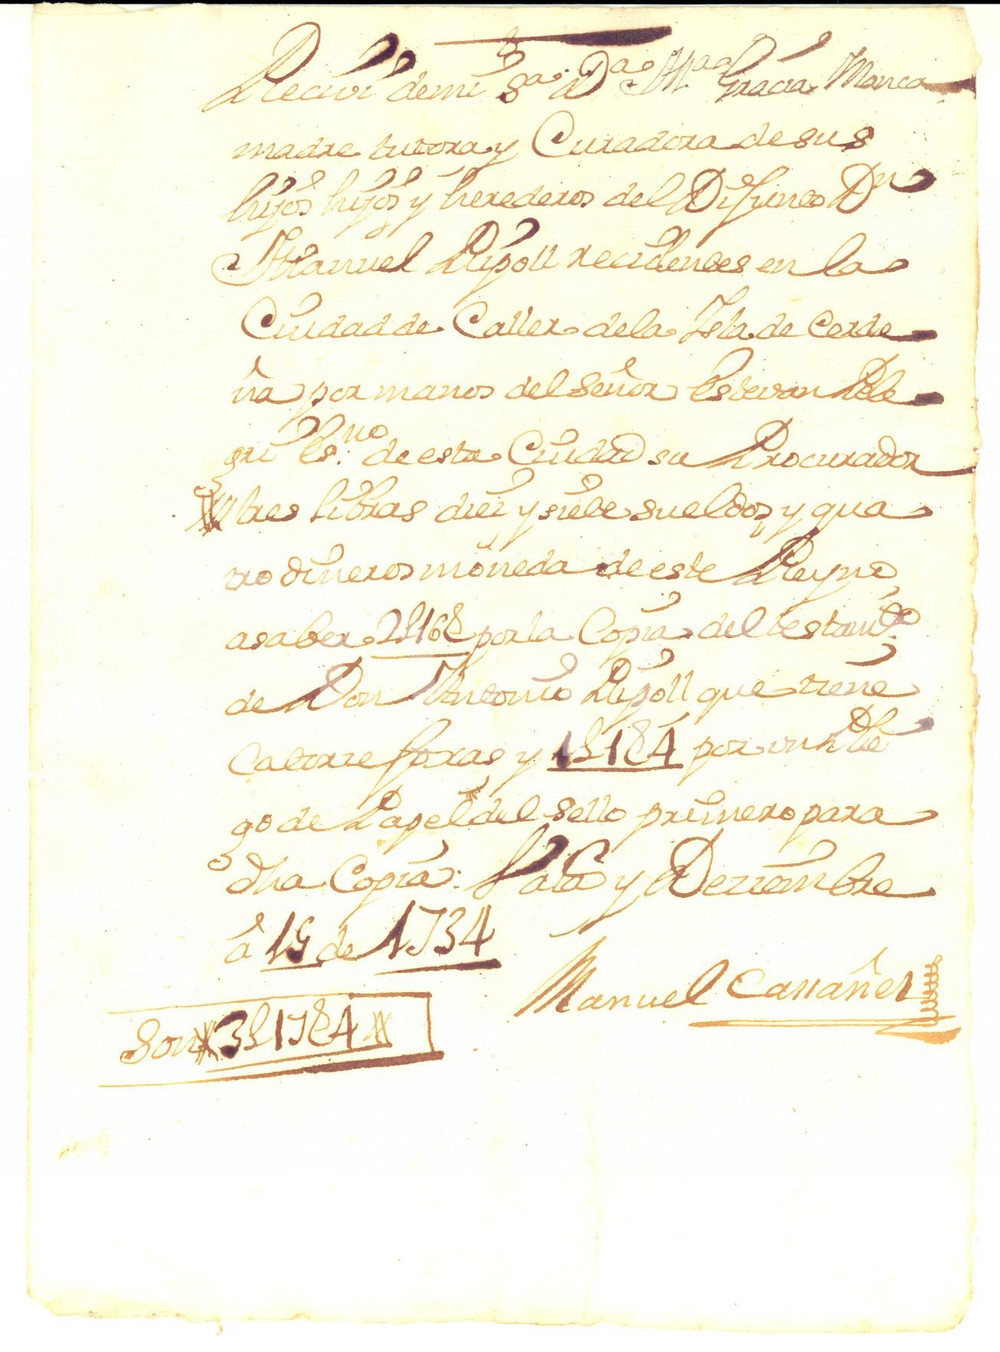 Recivi de mi Sa. Da. Ma. Gracia Manca
madre tutora y Curadora de sus
hijos hijos y herederos del Difunto Dn
Manuel Ripoll recidentes en la
Ciudad de Caller de la Isla de Cerde
ña por manos del Señor Estevan Pele
gri Es.no de esta Ciudad su Procurador
tres libras diez y siete sueldos, y qua
tro dineros moneda de este Reyno
a saber 2L16S por la Copia del testam.to
de Don Antonio Ripoll que tiene
catorze foxas y 1L1S4 por un Plie
go de Papel del sello primero para
dha Copia: Xata y Deziembre
à 19 de 1734
Manuel Cassañes
Son 3L17S4